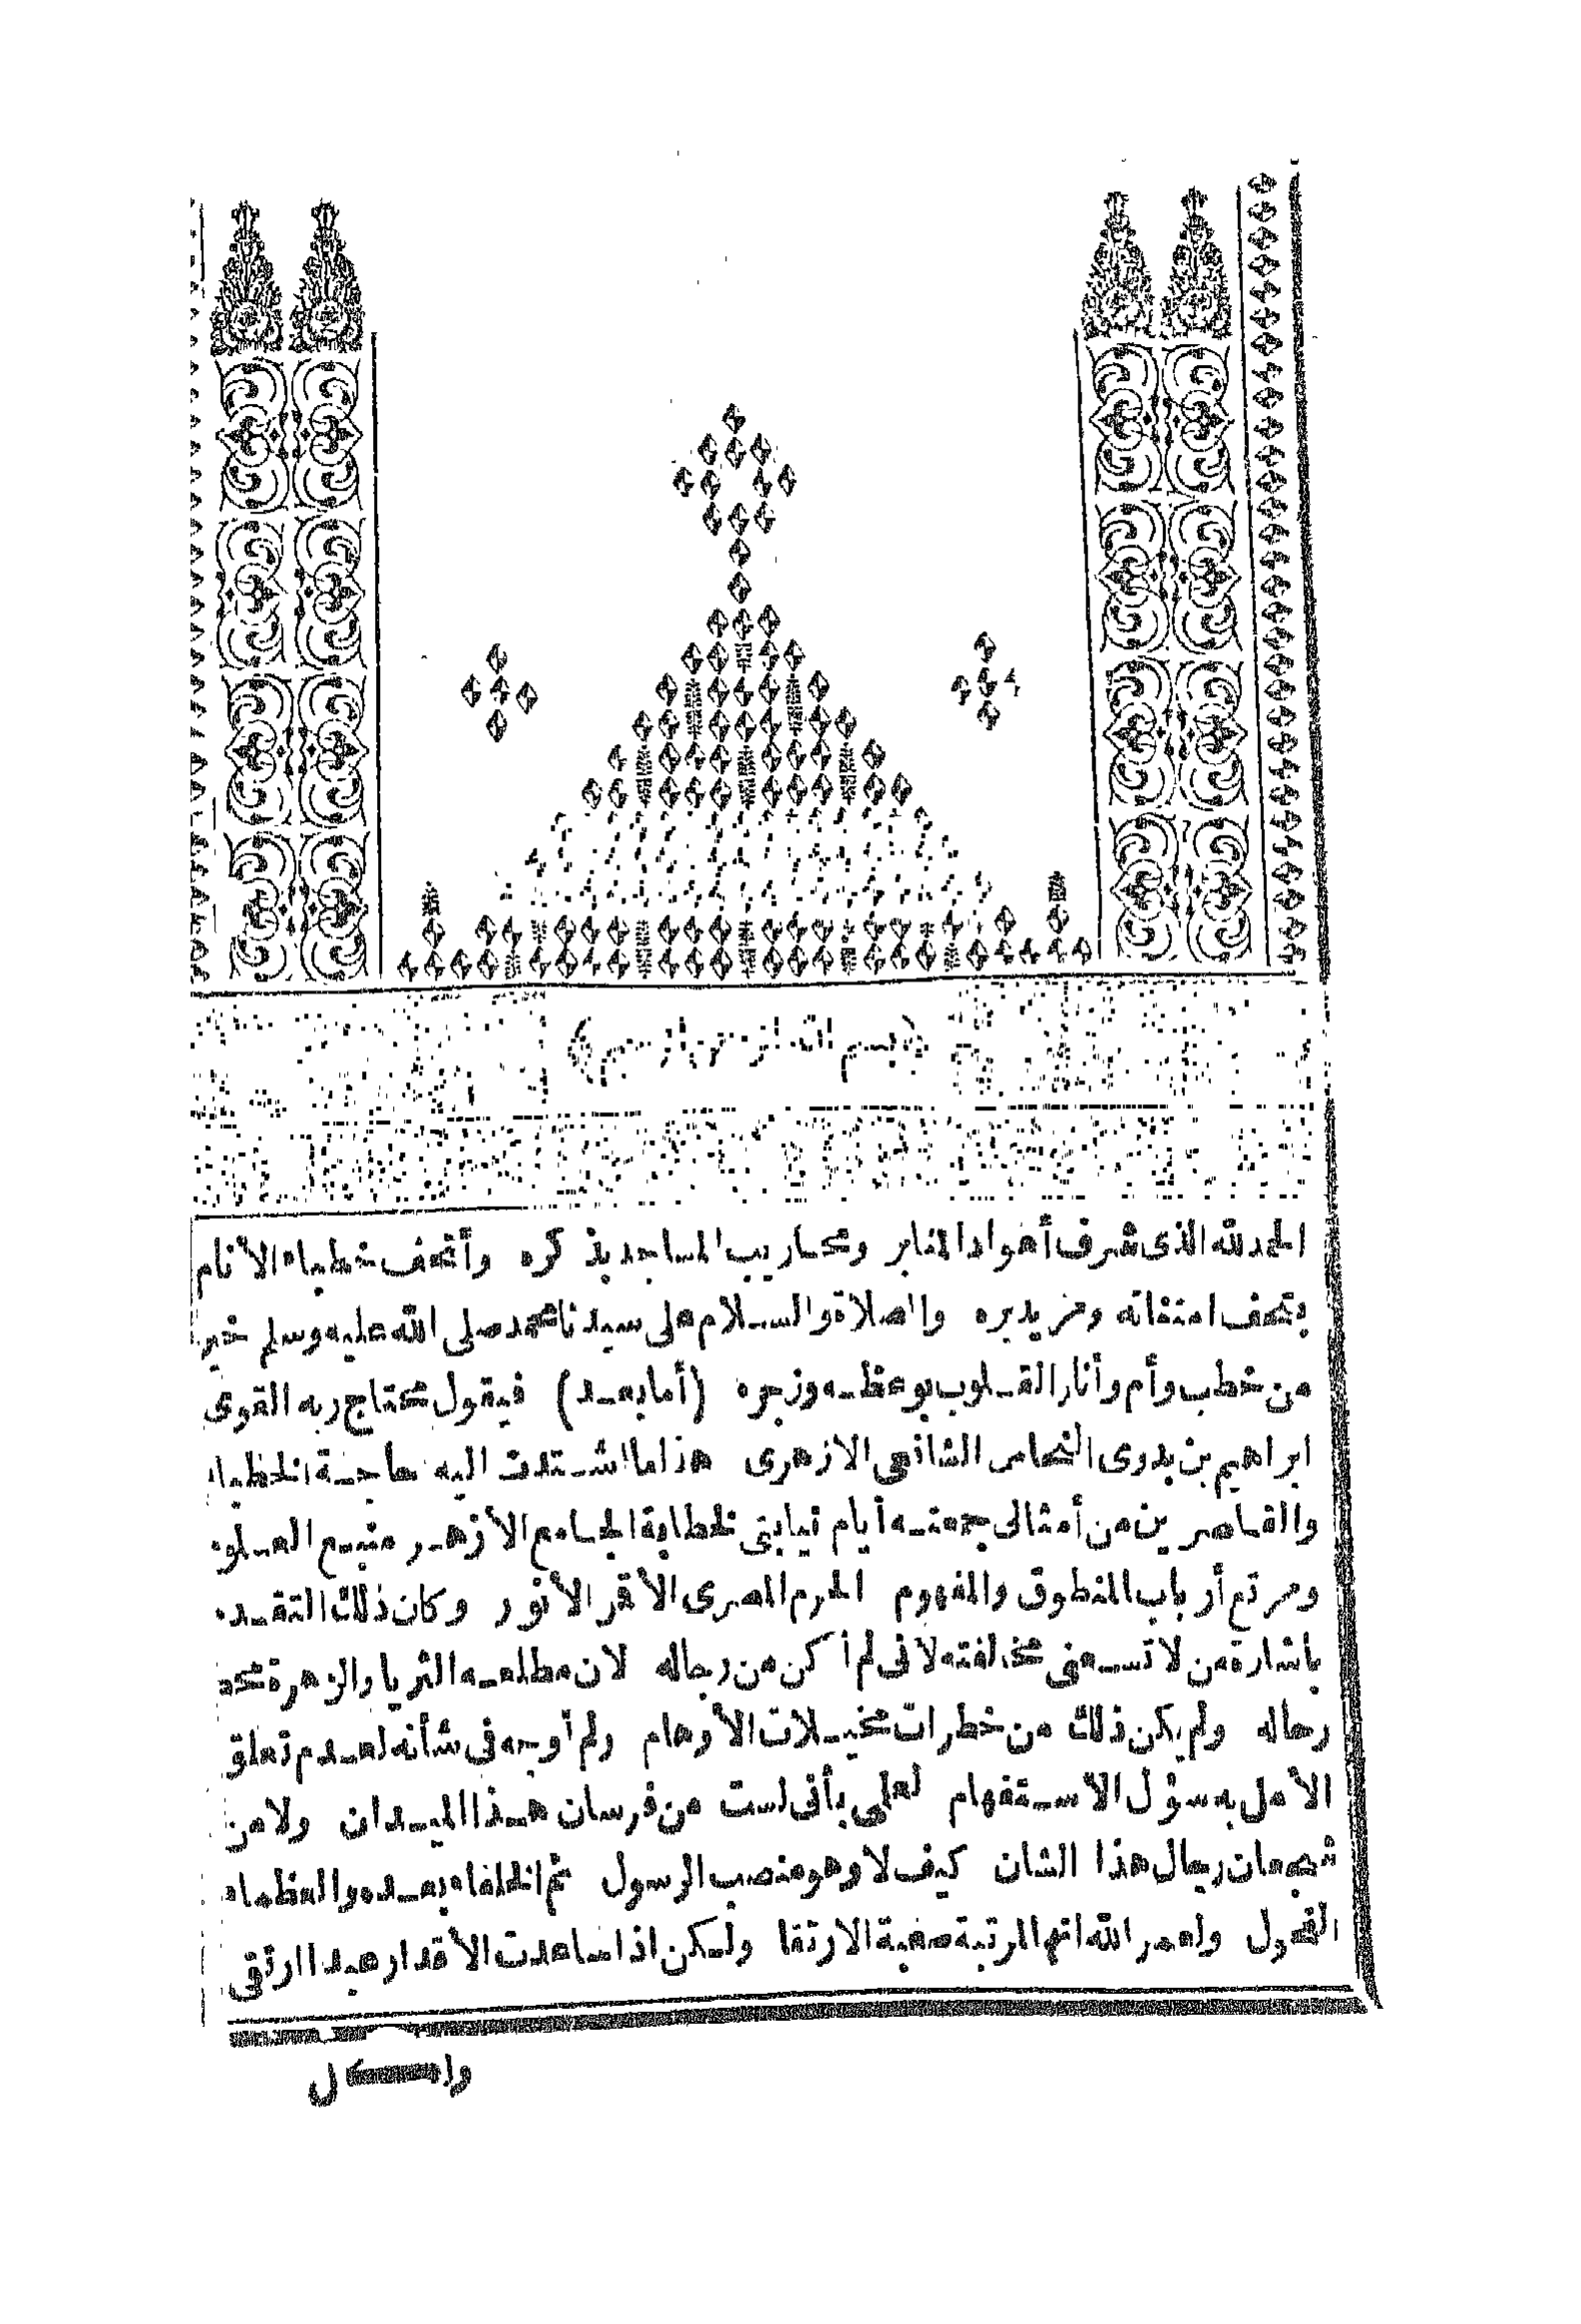 ﴿بسم الله الرحمن الرحيم﴾
الحمد لله الذى شرف أعواد المنابر ومحاريب المساجد بذكره وأتحف خطباء الانام
بتحف امتنانه ومزيد بره والصلاة والسلام على سيدنا محمد صلى الله عليه وسلم خير
من خطب وأم وأنار القلوب بوعظه وزجره (أما بعد) فيقول محتاج ربه القوى
ابراهيم بن بدوى النحاس الشافعى الازهرى هذا ما اشتدت اليه حاجة الخطباء
والقاصرين من أمثالى جمعته أيام نيابتى لخطابة الجامع الأزهر منبع العلوم
ومرتع أرباب المنطوق والمفهوم الحرم المصرى الأقر الأنور وكان ذلك التقدم
باشارة من لا تسعنى مخالفته لانى لم أكن من رجاله لان مطلعه الثريا والزهرة محط
رحاله ولم يكن ذلك من خطرات مخيلات الأوهام ولم أوجه فى شأنه لعدم تعلق
الأمل به سؤل الاستفهام لعلمى بأنى لست من فرسان هذا الميدان ولا من
شجعان رجال هذا الشان كيف لا وهو منصب الرسول ثم الخلفاء بعده والعظماء
الفحول ولعمر الله انها لمرتبة صعبة الارتقا ولكن اذا ساعدت الأقدار عبدا ارتقى
ولكل